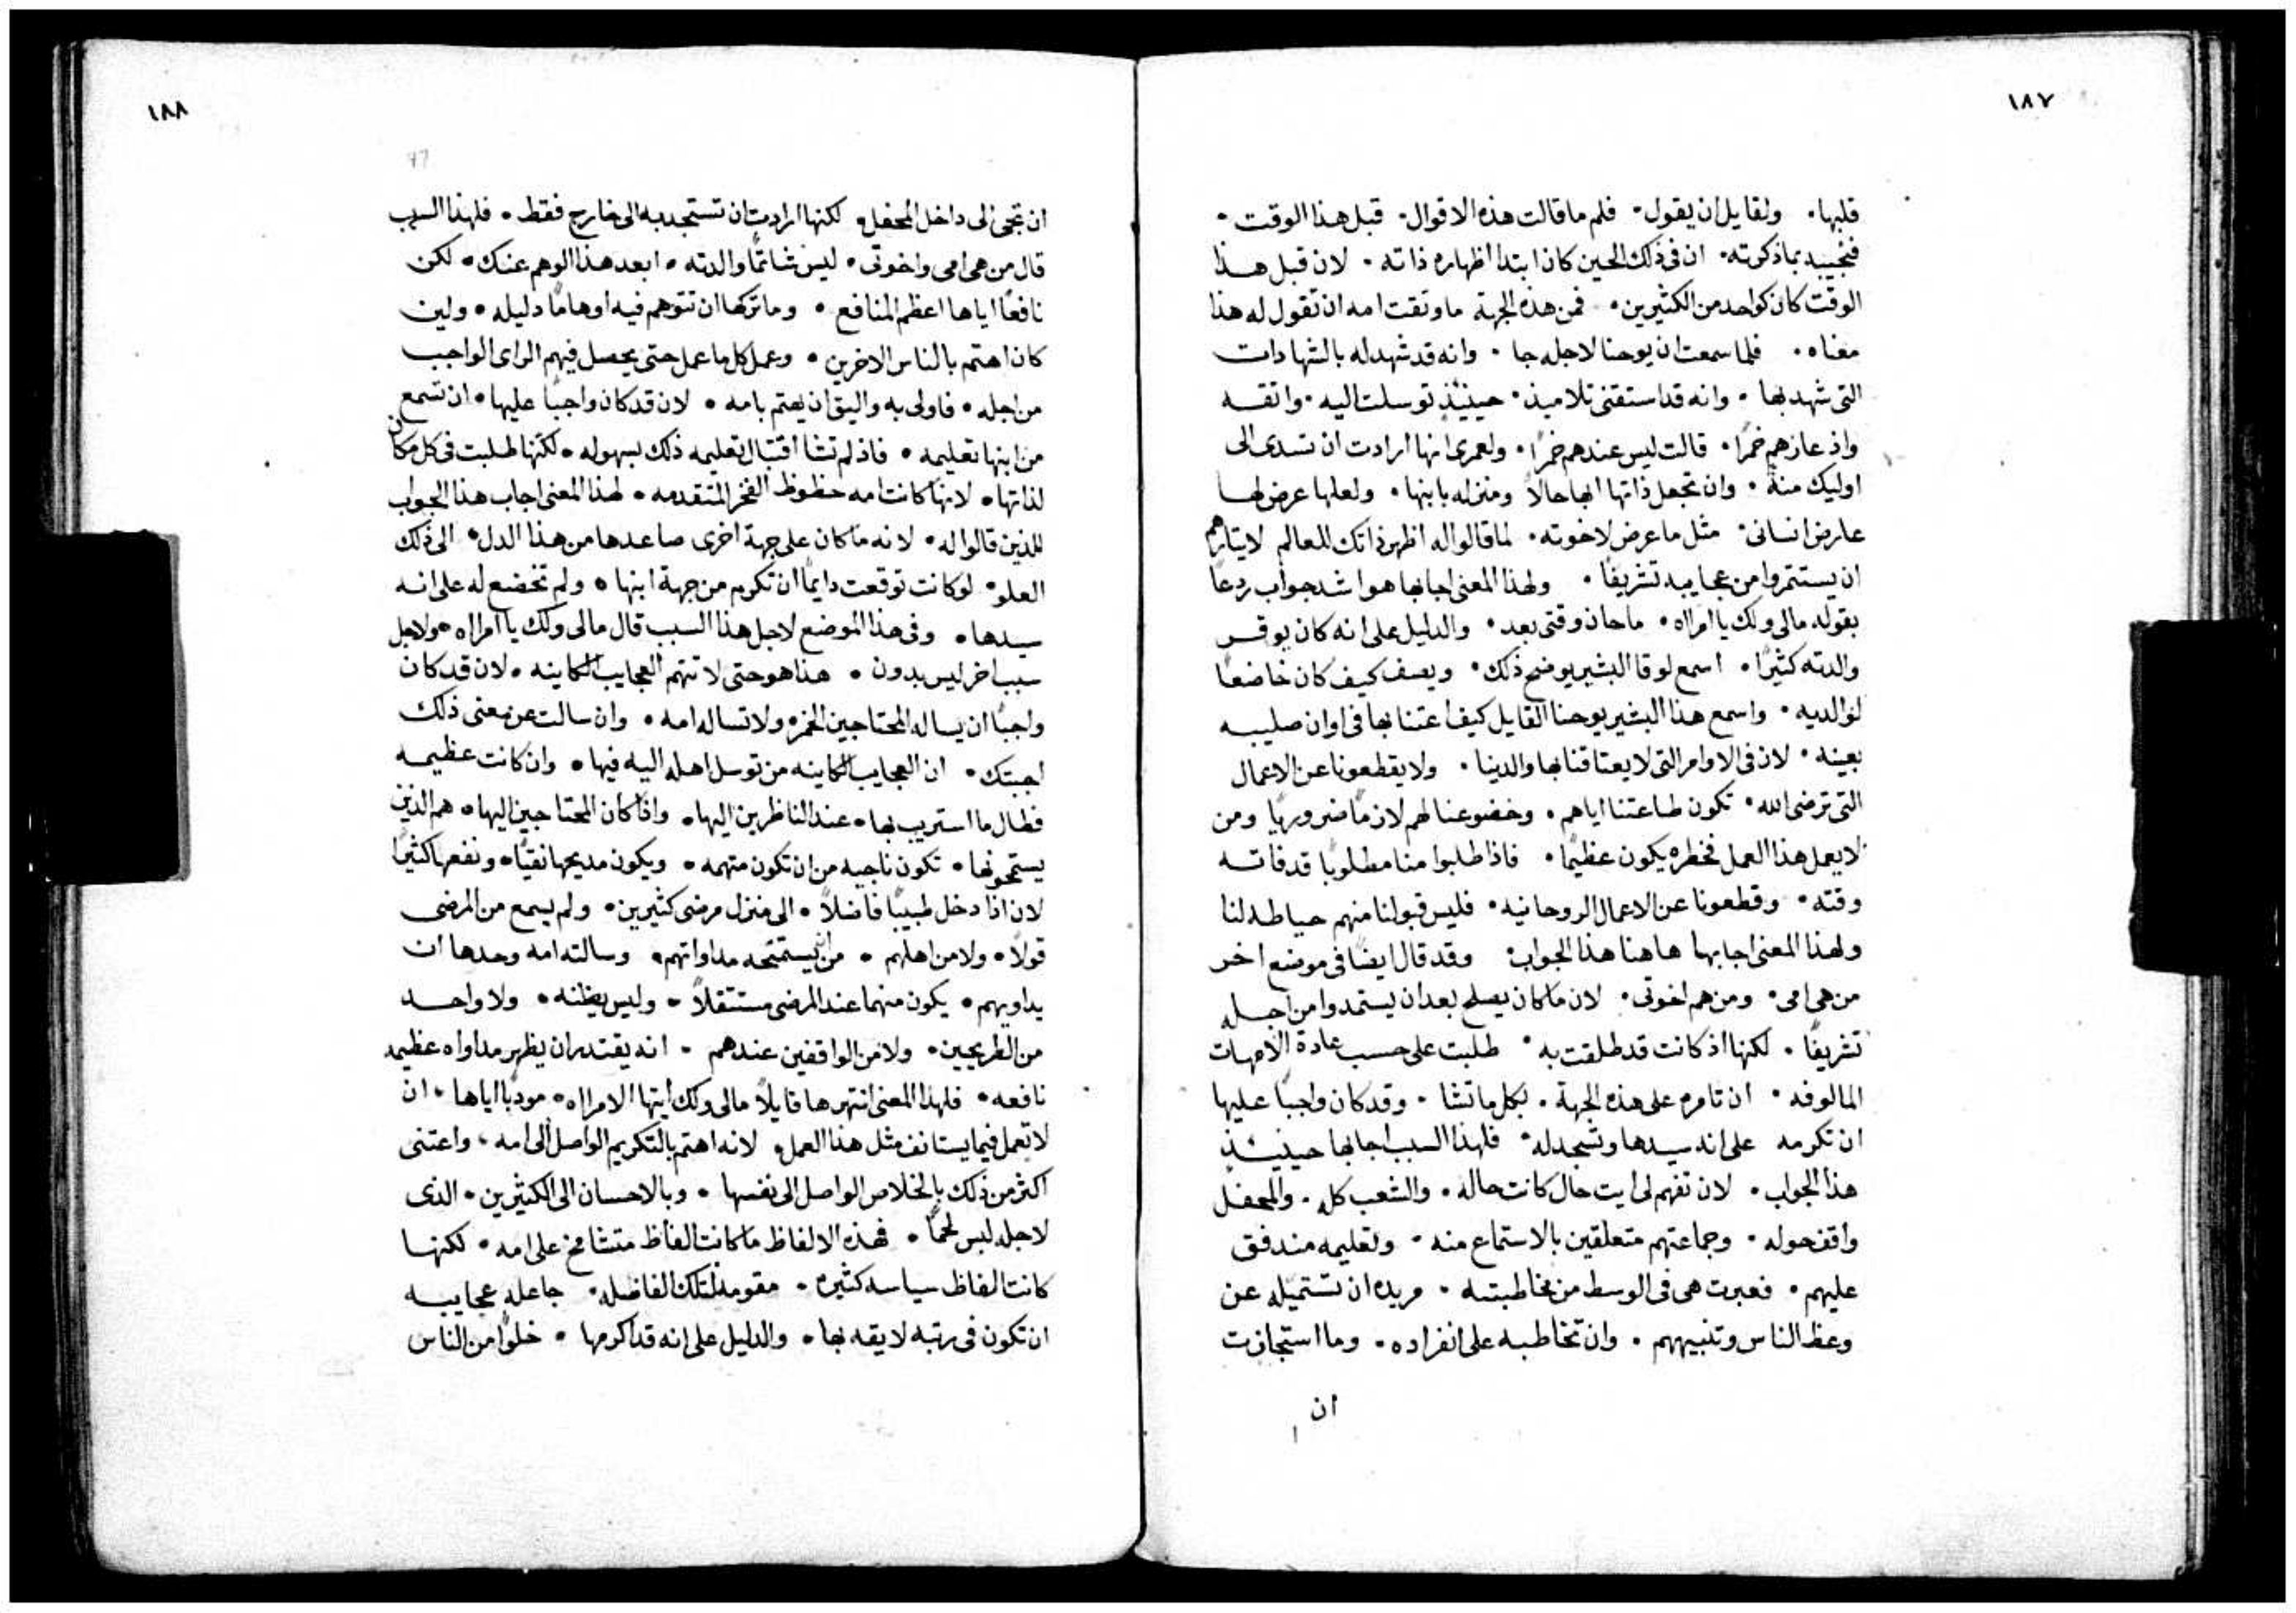 ١٨٧
قلبها۰ ولقايل ان يقول۰ فلم ما قالت هذه الاقوال۰ قبل هذا الوقت۰
فنجيبه بما ذكرته۰ ان في ذلك الحين كان ابتدا اظهاره ذاته۰ لان قبل هذا
الوقت كان كواحد من الكثيرين۰ فمن هذه الجهة ما وثقت امه ان تقول له هذا
معناه۰ فلما سمعت ان يوحنا لاجله جا۰ وانه قد شهد له بالشهادات
التي شهد بها۰ وانه قد استقتني تلاميذ۰ حينيذٍ توسلت اليه۰ واثقه
واذ عازهم خمرًا۰ قالت ليس عندهم خمرًا۰ ولعمري انها ارادت ان تسدي الى
اوليك منة۰ وان تجعل ذاتها ابها حالاً ومنزله بابنها۰ ولعلها عرض لها
عارض انساني۰ مثل ما عرض لاخوته۰ لما قالوا له اظهر ذاتك للعالم
ان يستثمروا من عجايبه تشريفًا۰ ولهذا المعنى اجابها هو اشد جواب ردعًا
بقوله مالي ولك يا امراه۰ ما حان وقتي بعد۰ والدليل على انه كان يوقر
والدته كثيرًا۰ اسمع لوقا البشير يوضح ذلك۰ ويصف كيف كان خاضعًا
لوالديه۰ واسمع هذا البشير يوحنا القايل كيف اعتنا بها في اوان صليبه
بعينه۰ لان في الاوامر التي لا يعتاقنا بها والدينا۰ ولا يقطعونا عن الاعمال
التي ترضي الله۰ تكون طاعتنا اياهم۰ وخضوعنا لهم لازمًا ضروريًا ومن
لا يعمل هذا العمل فخطره يكون عظيمًا۰ فاذا طلبوا منا مطلوبًا قد فاته
وقته۰ وقطعونا عن الاعمال الروحانيه۰ فليس قبولنا منهم حياطه لنا
ولهذا المعنى اجابها هاهنا هذا الجواب۰ وقد قال ايضًا في موضع اخر
من هي امي۰ ومن هم اخوتي۰ لان ما كان يصلح بعد ان يستمدوا من اجله
تشريفًا۰ لكنها اذ كانت قد طلقت به۰ طلبت على حسب عادة الامهات
المالوفه۰ ان تامره على هذه الجهة۰ بكل ما تشا۰ وقد كان واجبًا عليها
ان تكرمه على انه سيدها وتسجد له۰ فلهذا السبب اجابها حينيذٍ
هذا الجواب۰ لان تفهم لي ايت حال كانت حاله۰ والشعب كله۰ والمحفل
واقف حوله۰ وجماعتهم متعلقين بالاستماع منه۰ وتعليمه مندفق
عليهم۰ فعبرت هي في الوسط من مخاطبته۰ مريده ان تستميله عن
وعظ الناس وتنبيههم۰ وان تخاطبه على انفراده۰ وما استجازت
ان
١٨٨
ان تجي الى داخل المحفل۰ لكنها ارادت ان تستجذبه الى خارج فقط۰ فلهذا السبب
قال من هي امي واخوتي۰ ليس شاتمًا والدته۰ ابعد هذا الوهم عنك۰ لكن
نافعًا اياها اعظم المنافع۰ وما تركها ان تتوهم فيه اوهامًا دليله۰ ولين
كان اهتم بالناس الاخرين۰ وعمل كل ما عمل حتى يحصل فيهم الراي الواجب
من اجله۰ فاولى به واليق ان يهتم بامه۰ لان قد كان واجبًا عليها۰ ان تسمع
من ابنها تعليمه۰ فاذ لم تشا اقتبال تعليمه ذلك بسهوله۰ لكنها طلبت في كل مكان
لذاتها۰ لانها كانت امه حظوظ الفخر المتقدمه۰ لهذا المعنى اجاب هذا الجواب
للذين قالوا له۰ لانه ما كان على جهة اخرى صاعدها من هذا الدل۰ الى ذلك
العلو۰ لو كانت توقعت دايمًا ان تكرم من جهة ابنها۰ ولم تخضع له على انه
سيدها۰ وفي هذا الموضع لاجل هذا السبب قال مالي ولك يا امراه۰ ولاجل
سبب اخر ليس بدون۰ هذا هو حتى لا تتهم العجايب الكاينه۰ لان قد كان
واجبًا ان يساله المحتاجين الخمر۰ ولا تساله امه۰ وان سالت عن معنى ذلك
اجبتك۰ ان العجايب الكاينه من توسل اهله اليه فيها۰ وان كانت عظيمه
فطال ما استريب بها۰ عند الناظرين اليها۰ واذا كان المحتاجين اليها۰ هم الذين
يستمحونها۰ تكون ناجيه من ان تكون متهمه۰ ويكون مديحها نقيًا۰ ونفعها كثيرًا
لان اذا دخل طبيبًا فاضلاً۰ الى منزل مرضى كثيرين۰ ولم يسمع من المرضى
قولاً۰ ولا من اهلهم۰ من يستمحه مداواتهم۰ وسالته امه وحدها ان
يداويهم۰ يكون متهما عند المرضى مستثقلاً۰ وليس يظنه۰ ولا واحد
من الطريحين۰ ولا من الواقفين عندهم۰ انه يقتدر ان يظهر مداواه عظيمه
نافعه۰ فلهذا المعنى انتهرها قايلاً مالي ولك ايتها الامراه۰ مودبًا اياها۰ ان
لا تعمل فيما يستانف مثل هذا العمل۰ لانه اهتم بالتكريم الواصل الى امه۰ واعتنى
اكثر من ذلك بالخلاص الواصل الى نفسها۰ وبالاحسان الى الكثيرين۰ الذي
لاجله لبس لحمًا۰ فهذه الالفاظ ما كانت الفاظ متشامخ على امه۰ لكنها
كانت الفاظ سياسه كثيره۰ مقومه لتلك الفاضله۰ جاعله عجايبه
ان تكون في رتبه لايقه بها۰ والدليل على انه قد اكرمها۰ خلوًا من الناس